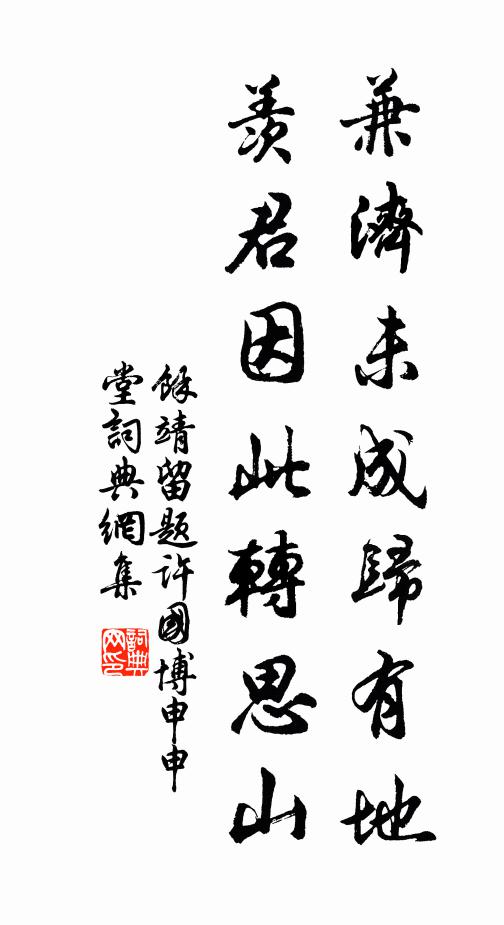 兼濟未成歸有地
羨君因此轉思山
餘靖留題許國博申申
堂詞典網集
詞典网印